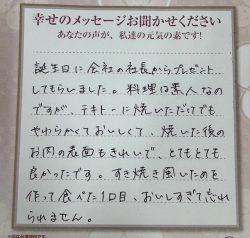 幸せのメッセージお聞かせください
あなたの声が、私達の元気の素です!
誕生日に会社の社長からプレゼント
してもらいました。料理は素人なの
ですが、テキトーに焼いただけでも
やわらかくておいしくて、焼いた後の
お肉の表面もきれいで、とてもとても
良かったです。すき焼き風いためを
作って食べた1口目、おいしすぎて忘れ
られません。